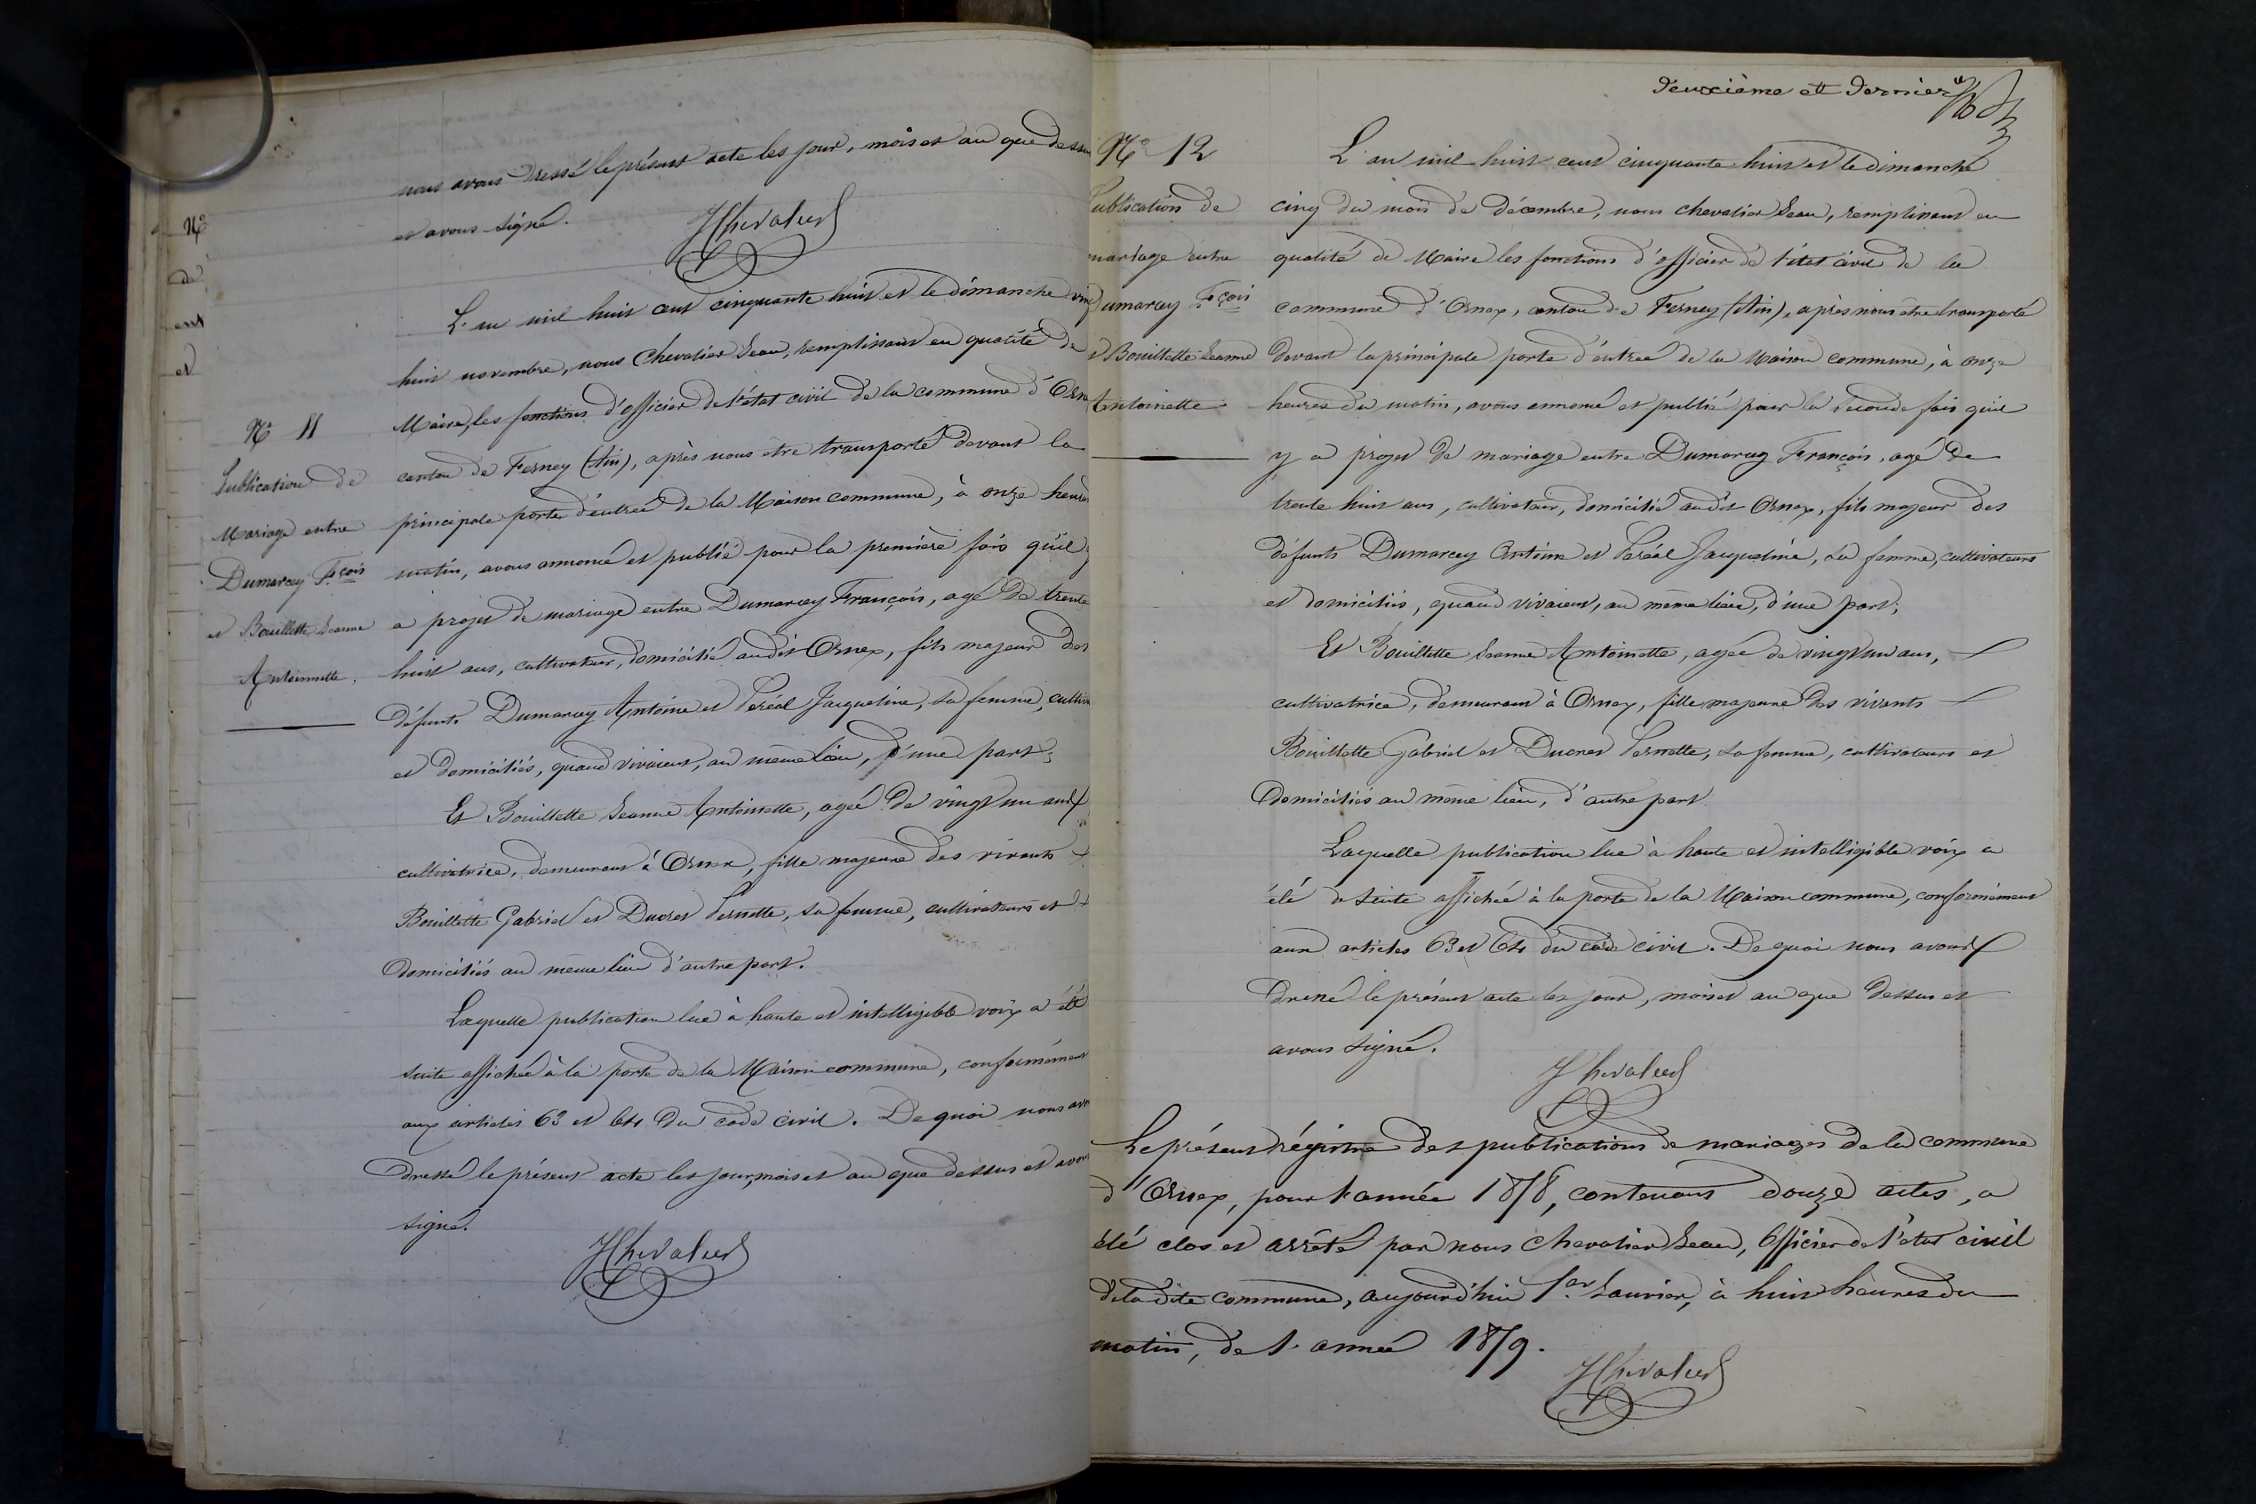 nous avons dressé le présent acte les jour, mois et an que dessus
et avons signé.
JChevalier
N°
de
ent
et
N° 11
Publication de
Mariage entre
Dumarcey Fçois
et Bouillette Jeanne
Antoinette.
L'an mil huit cent cinquante huit et le dimanche ving
huit novembre, nous Chevalier Jean, remplissant en qualité de
Maire, les fonctions d'officier de l'état civil de la commune d'Orne
canton de Ferney (Ain), après nous être transporté devant la
principale porte d'entrée de la Maison commune, à onze heures
matin, avons annoncé et publié pour la première fois qu'il y
a projet de mariage entre Dumarcey François, agé de trente
huit ans, cultivateur, domicilié audit Ornex, fils majeur des
défunts Dumarcey Antoine et Peréal Jacqueline, sa femme, cultiv
et domiciliés, quand vivaient, au même lieu, d'une part;
Et Bouillette Jeanne Antoinette, agée de vingt un ans
cultivatrice, demeurant à Ornex, fille majeure des vivants
Bouillette Gabriel et Ducret Pernette, sa femme, cultivateurs et
domiciliés au même lieu d'autre part.
Laquelle publication lue à haute et intelligible voix a été
suite affichée à la porte de la Maison commune, conformément
aux articles 63 et 64 du code civil. De quoi nous avo
dressé le présent acte les jour, mois et an que dessus et avons
signé.
JChevalier
deuxième et dernier
N° 12
Publication de
mariage entre
Dumarcey Fçois
et Bouillette Jeanne
Antoinette
L'an mil huit cent cinquante huit et le dimanche
cinq du mois de Décembre, nous Chevalier Jean, remplissant en
qualité de Maire les fonctions d'officier de l'état civil de la
commune d'Ornex, canton de Ferney (Ain), après nous être transporté
devant la principale porte d'entrée de la Maison commune, à onze
heures du matin, avons annoncé et publié pour la seconde fois qu'il
y a projet de mariage entre Dumarcey François, agé de
trente huit ans, cultivateur, domicilié audit Ornex, fils majeur des
défunts Dumarcey Antoine et Peréal Jacqueline, sa femme, cultivateurs
et domiciliés, quand vivaient, au même lieu, d'une part;
Et Bouillette Jeanne Antoinette, agée de vingt un ans,
cultivatrice, demeurant à Ornex, fille majeure des vivants
Bouillette Gabriel et Ducret Pernette, sa femme, cultivateurs et
domiciliés au même lieu, d'autre part
Laquelle publication lue à haute et intelligible voix a
été de suite affichée à la porte de la Maison commune, conformément
aux articles 63 et 64 du code civil. De quoi nous avons
dressé le présent acte les jour, mois et an que dessus et
avons signé.
JChevalier
Le présent régistre des publications de mariages de la commune
d'Ornex, pour l'année 1858, contenant douze actes, a
été clos et arrêté par nous Chevalier Jean, Officier de l'état civil
de la dite commune, aujourd'hui 1er Janvier, à huit heures du
matin, de l'année 1859.
JChevalier